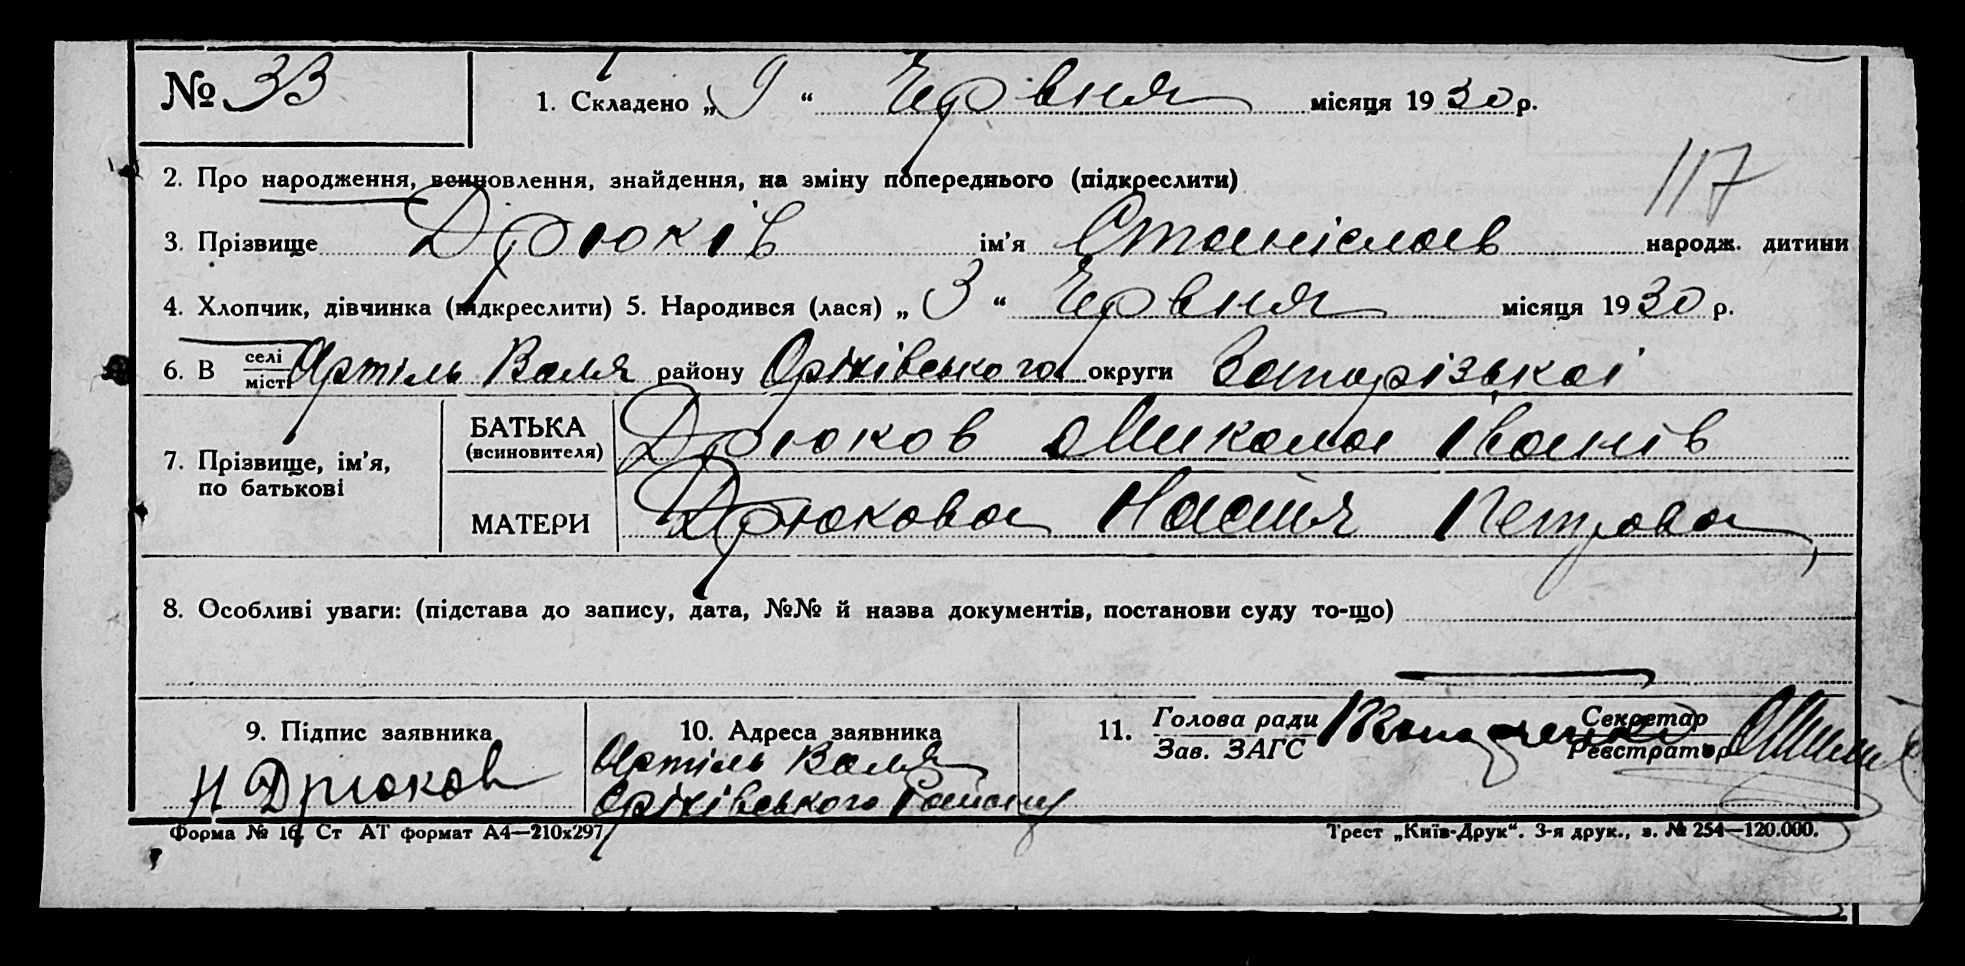 № 33
1. Складено „ 9 “ Червня місяця 1930 р.
2. Про народження, всиновлення, знайдення, на зміну попереднього (підкреслити)
117
3. Прізвище Дрюків ім’я Станіслав народж. дитини
4. Хлопчик, дівчинка (підкреслити) 5. Народився (лася) „ 3 “ Червня місяця 1930 р.
6. В селі місті Артіль Воля району Оріхівського округи Запорізької
7. Прізвище, ім’я, по батькові
БАТЬКА (всиновителя) Дрюков Микола Іванів
МАТЕРИ Дрюкова Настя Петрова
8. Особливі уваги: (підстава до запису, дата, №№ й назва документів, постанови суду то-що)
9. Підпис заявника
Н Дрюков
10. Адреса заявника
Артіль Воля
Оріхівського Району
11. Голова ради Секретар
Зав. ЗАГС Реєстратор
Форма № 16, Ст АТ формат А4—210x297 Трест „Київ-Друк“. 3-я друк., з. № 254—120.000.